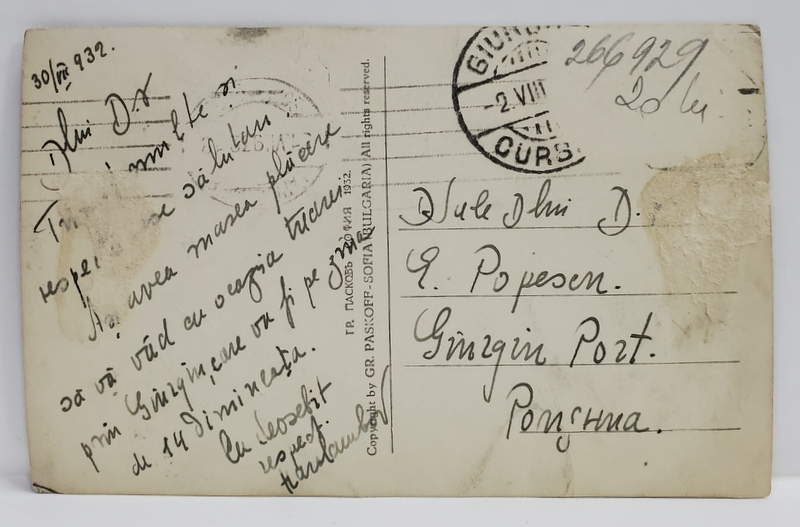 30/VII 932.
Dlui Dr
multe și
salutari.
Aș avea marea plăcere
să vă văd cu ocazia trecerei
prin Giurgiu, care va fi pe
de 14 dimineața.
Cu deosebit
respect.
ГР. ПАСКОВЪ СОФИЯ 1932.
Copyright by GR. PASKOFF-SOFIA (BULGARIA) All rights reserved.
GIURG
-2.VIII
CURS
266929
20 lei
Dlui D.
G. Popescu.
Giurgiu Port.